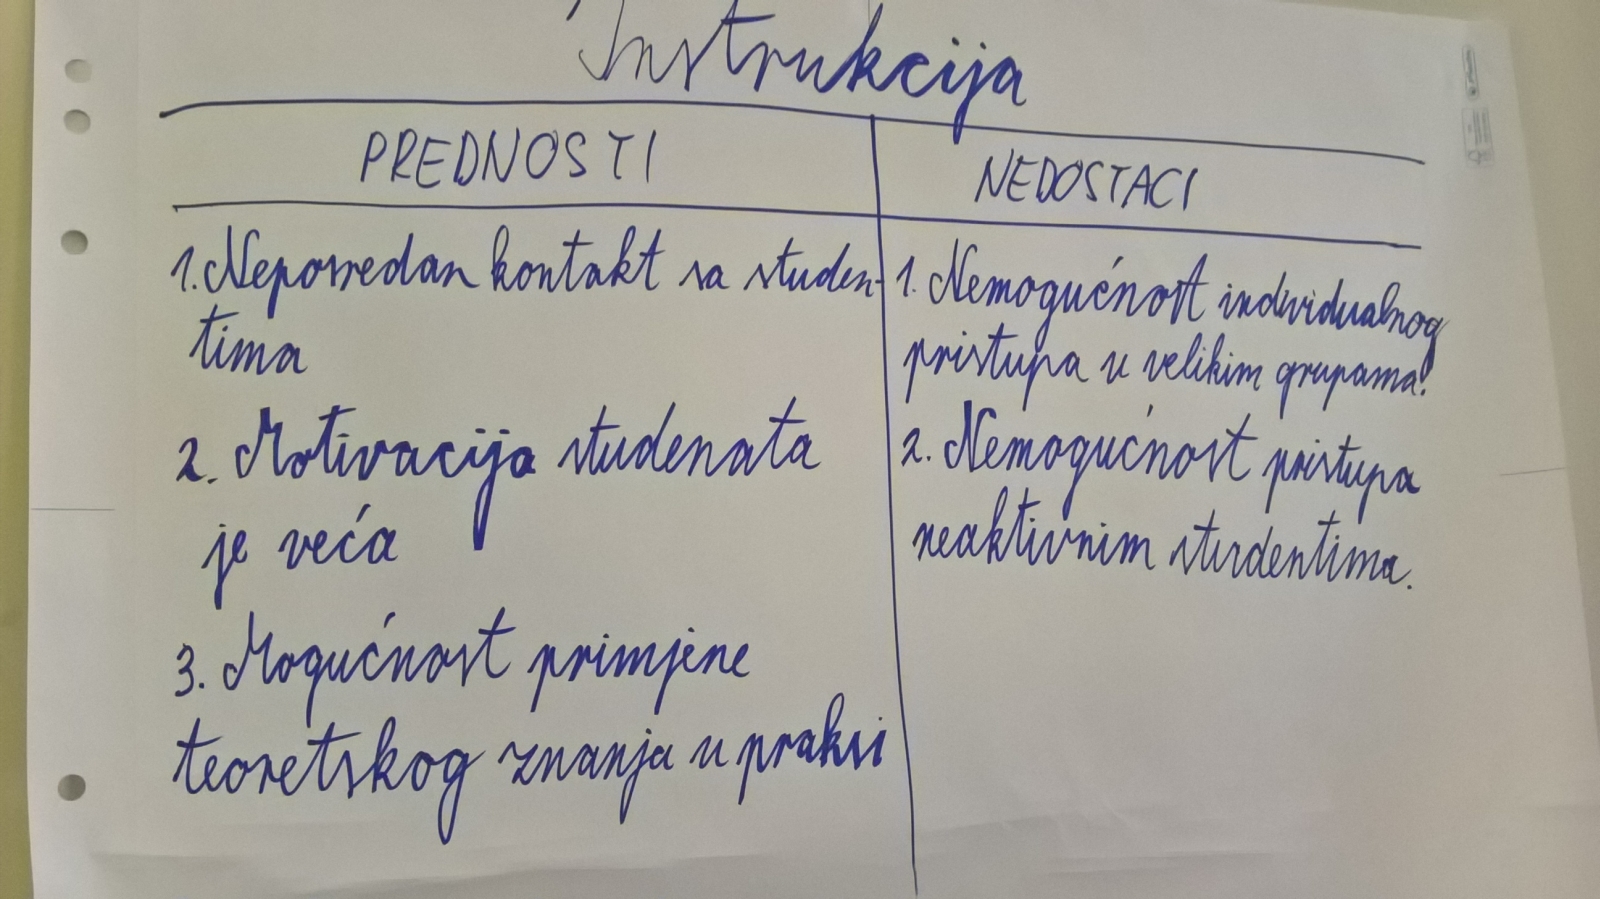 Instrukcija
PREDNOSTI
1. Neposredan kontakt sa studen-
tima
2. Motivacija studenata
je veća
3. Mogućnost primjene
teoretskog znanja u praksi
NEDOSTACI
1. Nemogućnost individualnog
pristupa u velikim grupama.
2. Nemogućnost pristupa
neaktivnim studentima.